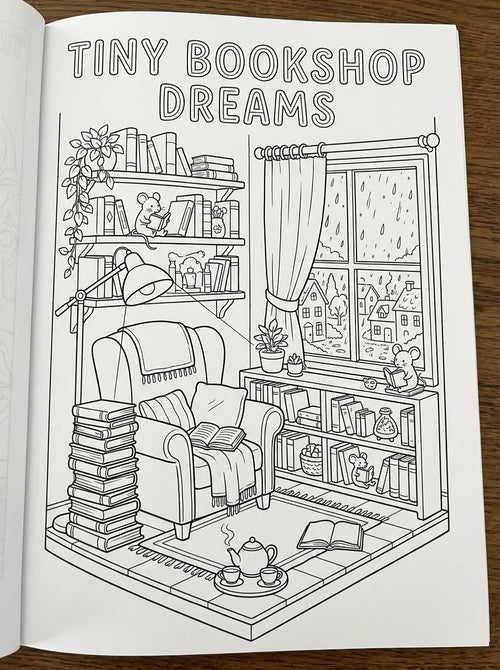 TINY BOOKSHOP
DREAMS